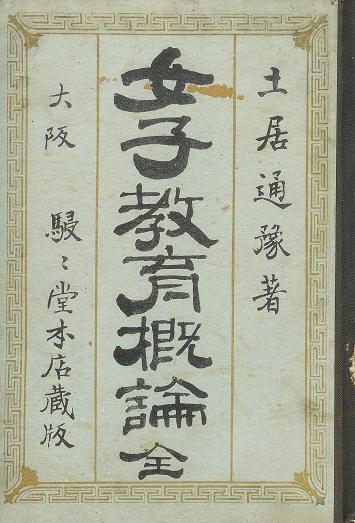 土居通豫著
女子教育概論 全
大阪 駸〻堂本店蔵版